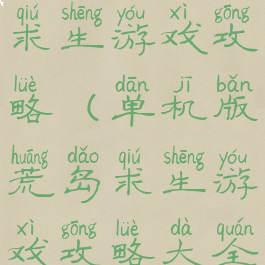 qiú shēng yóu xì gōng
求生游戏攻
lüè dān jī bǎn
略(单机版
huāng dǎo qiú shēng yóu
荒岛求生游
xì gōng lüè dà quán
戏攻略大全